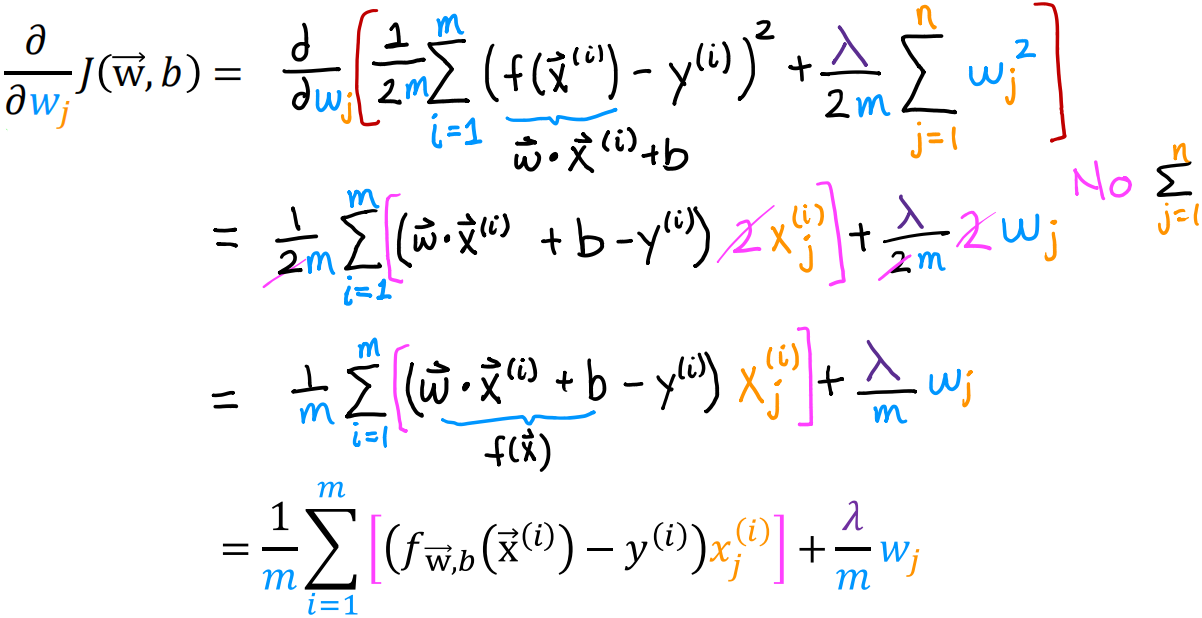 ∂/∂w_j J(w⃗, b) = ∂/∂w_j [ 1/2m ∑_{i=1}^{m} (f(x⃗^(i)) − y^(i))² + λ/2m ∑_{j=1}^{n} w_j² ]
w⃗ · x⃗^(i) + b
No ∑_{j=1}^{n}
= 1/2m ∑_{i=1}^{m} [(w⃗ · x⃗^(i) + b − y^(i)) 2 x_j^(i)] + λ/2m 2 w_j
= 1/m ∑_{i=1}^{m} [(w⃗ · x⃗^(i) + b − y^(i)) x_j^(i)] + λ/m w_j
f(x⃗)
= 1/m ∑_{i=1}^{m} [(f_{w⃗,b}(x⃗^(i)) − y^(i)) x_j^(i)] + λ/m w_j